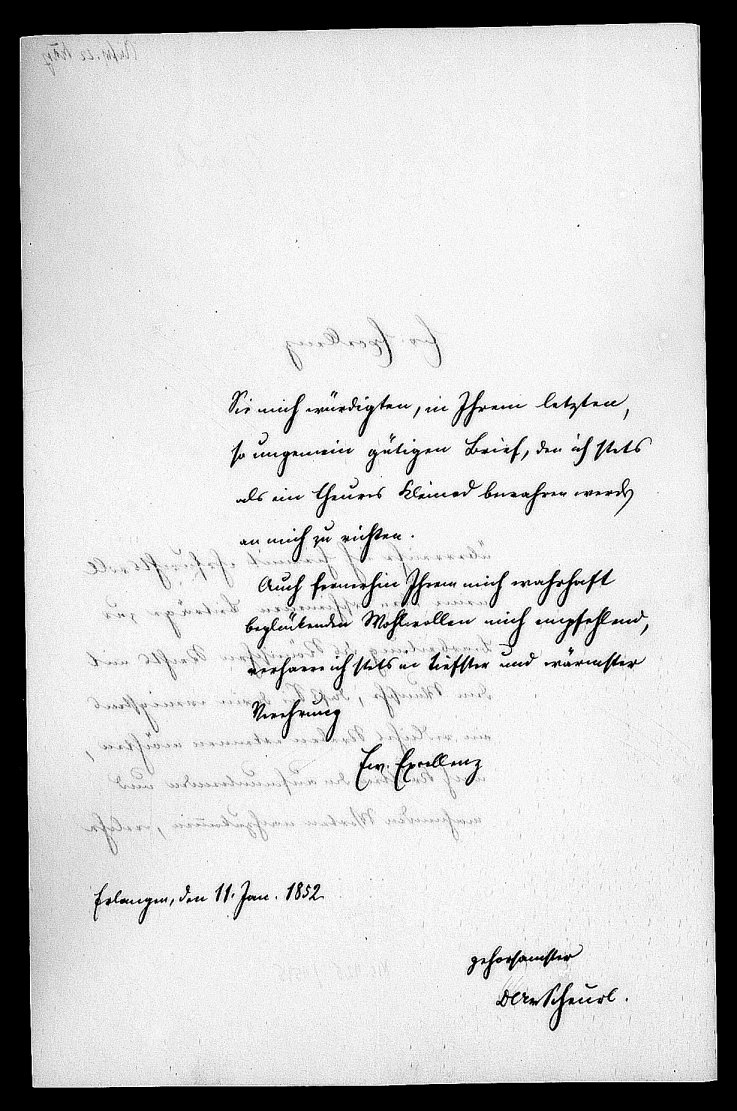 Sie mich würdigten, in Ihrem letzten,
so ungemein gütigen Brief, den ich stets
als ein theures Kleinod bewahren werde,
an mich zu richten.
Auch fernerhin Ihrem mich wahrhaft
beglückenden Wohlwollen mich empfehlend,
verharre ich stets in tiefster und wärmster
Verehrung
Ew. Excellenz
Erlangen, den 11. Jan. 1852.
gehorsamster
Scheurl.